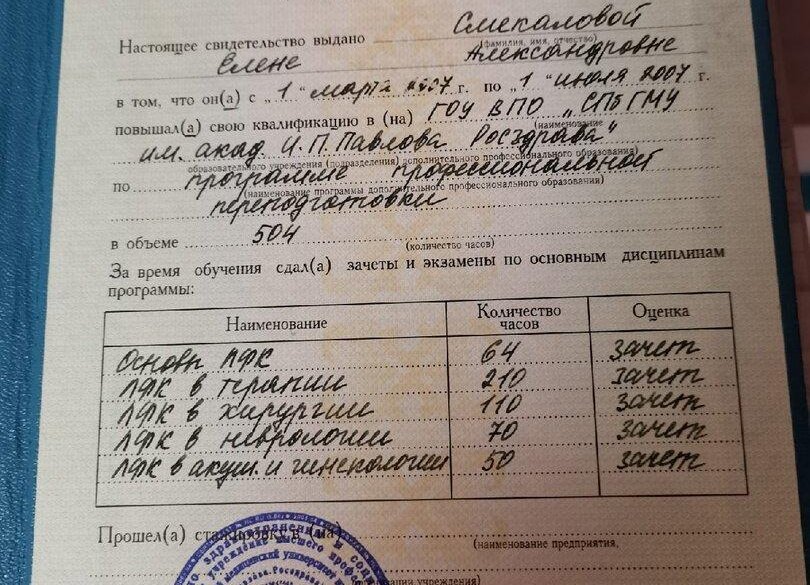 Смекаловой
Настоящее свидетельство выдано
(фамилия, имя, отчество)
Елене Александровне
в том, что он(а) с „1“ марта 2007 г. по „1“ июля 2007 г.
повышал(а) свою квалификацию в (на) ГОУ ВПО „СПбГМУ
(наименование
им. акад. И.П. Павлова Росздрава“
образовательного учреждения (подразделения) дополнительного профессионального образования)
по программе профессиональной
(наименование программы дополнительного профессионального образования)
переподготовки
в объеме 504
(количество часов)
За время обучения сдал(а) зачеты и экзамены по основным дисциплинам
программы:
Наименование Количество часов Оценка
Основы ЛФК 64 зачет
ЛФК в терапии 210 зачет
ЛФК в хирургии 110 зачет
ЛФК в неврологии 70 зачет
ЛФК в акуш. и гинекологии 50 зачет
Прошел(а) стажировку в (на)
(наименование предприятия,
учреждения)